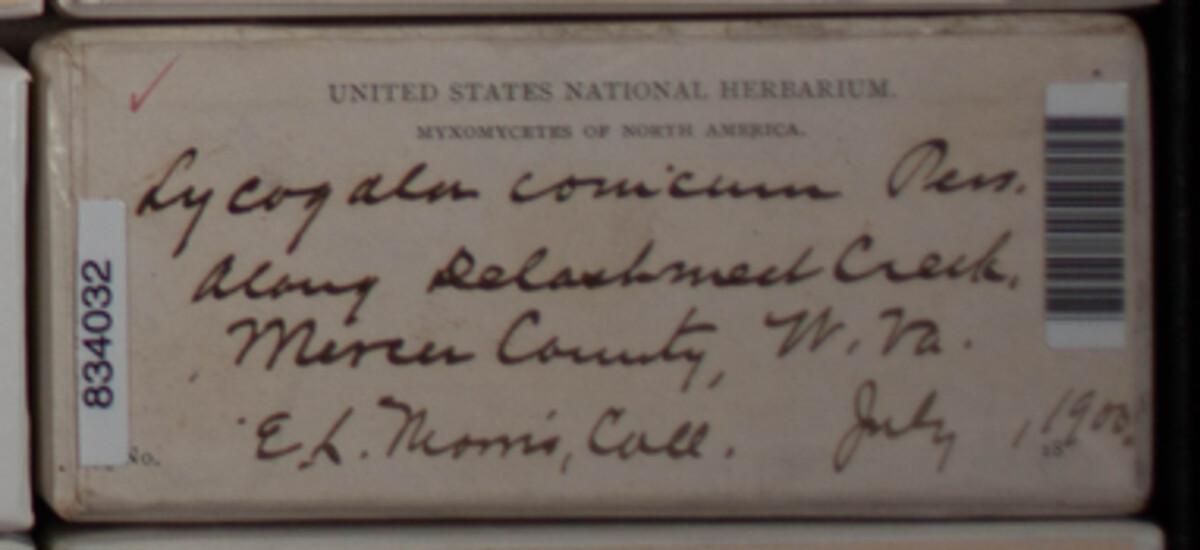 UNITED STATES NATIONAL HERBARIUM.
MYXOMYCETES OF NORTH AMERICA.
Lycogala conicum Pers.
Along Delashmeet Creek,
Mercer County, W. Va.
E. L. Morris, Coll. July , 1900.
No.
834032